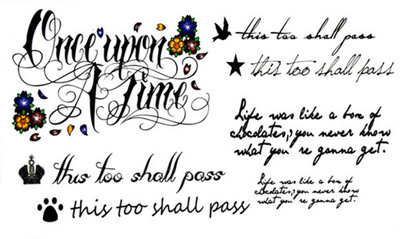 Once upon
A Time
this too shall pass
this too shall pass
Life was like a box of
chocolates, you never know
what you're gonna get.
this too shall pass
this too shall pass
Life was like a box of
chocolates, you never know
what you're gonna get.